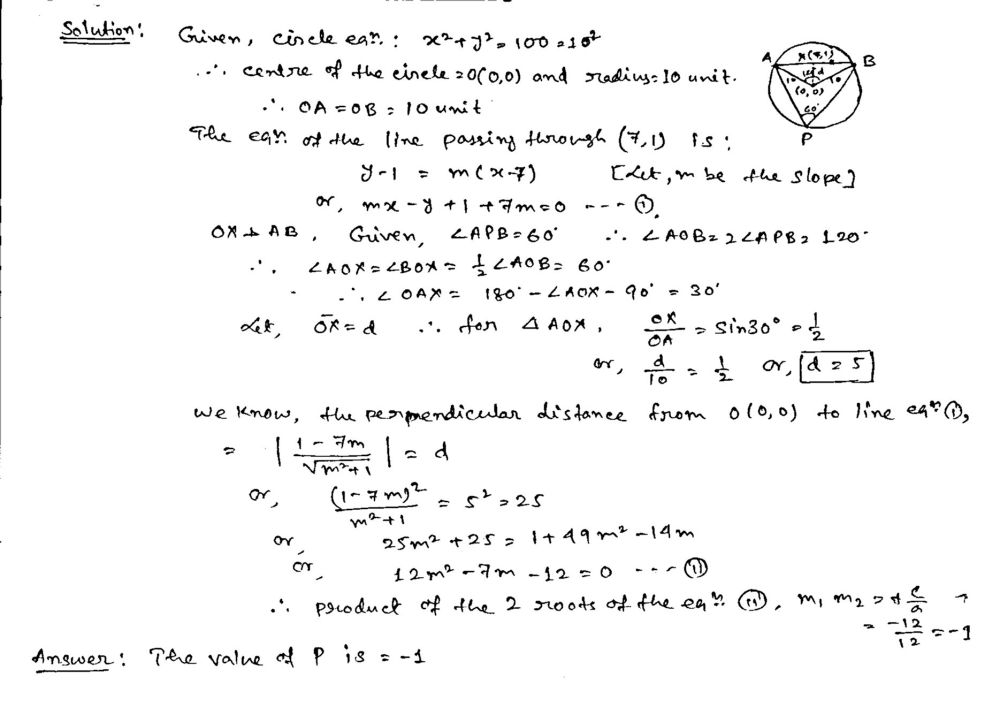 Solution: Given, circle eqⁿ. : x² + y² = 100 = 10²
∴ centre of the circle = O(0,0) and radius = 10 unit.
∴ OA = OB = 10 unit
The eqⁿ. of the line passing through (7,1) is :
y-1 = m(x-7) [Let, m be the slope]
or, mx - y + 1 + 7m = 0 --- ①.
OX ⊥ AB, Given, ∠APB = 60° ∴ ∠AOB = 2∠APB = 120°
∴ ∠AOX = ∠BOX = 1/2 ∠AOB = 60°
∴ ∠OAX = 180° - ∠AOX - 90° = 30°
Let, OX = d ∴ for △AOX, OX/OA = sin30° = 1/2
or, d/10 = 1/2 or, d = 5
We know, the perpmendicular distance from O(0,0) to line eqⁿ ①,
= |(1-7m)/√(m²+1)| = d
or, (1-7m)²/(m²+1) = 5² = 25
or, 25m² + 25 = 1 + 49m² - 14m
or, 12m² - 7m - 12 = 0 --- ⑪
∴ product of the 2 roots of the eqⁿ. ⑪, m₁ m₂ = + c/a
= -12/12 = -1
Answer: The value of P is = -1
A
X(7,1)
B
10
d
10
(0,0)
60°
P